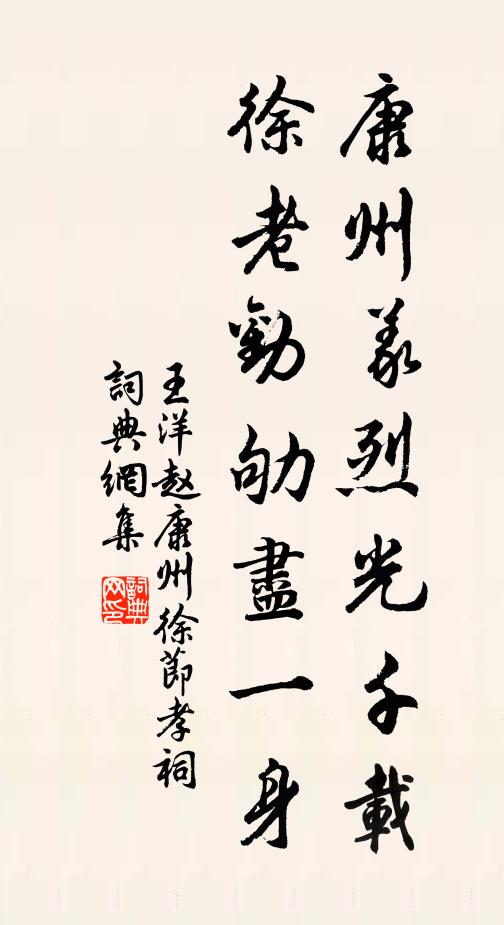 康州義烈光千載
徐老勤劬盡一身
王洋赵康州徐節孝祠
詞典網集
詞典網印